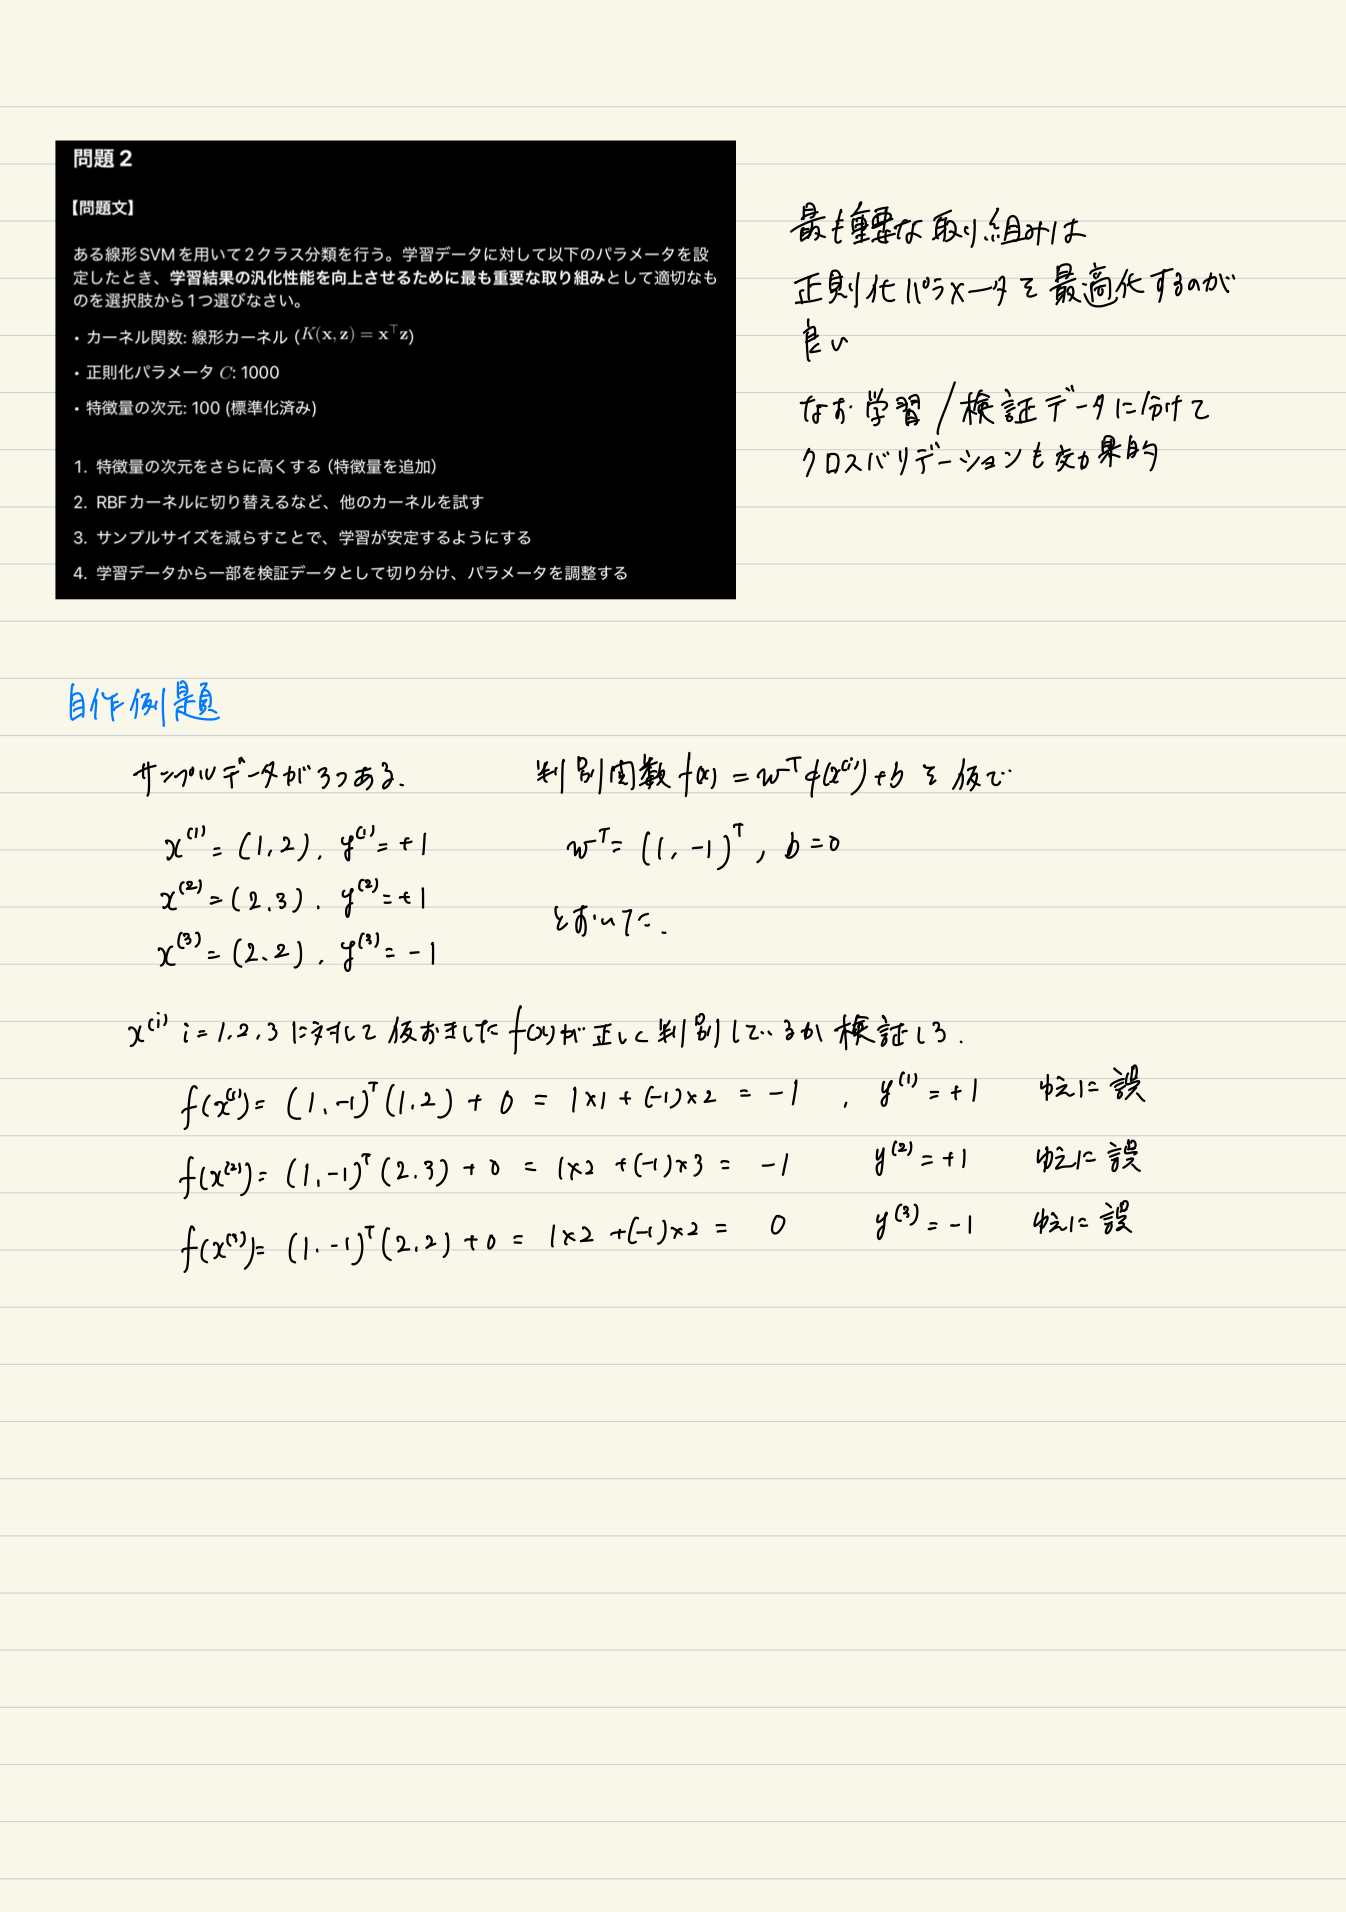 問題 2
【問題文】
ある線形SVMを用いて2クラス分類を行う。学習データに対して以下のパラメータを設
定したとき、学習結果の汎化性能を向上させるために最も重要な取り組みとして適切なも
のを選択肢から1つ選びなさい。
• カーネル関数: 線形カーネル (K(x, z) = x⊤z)
• 正則化パラメータ C: 1000
• 特徴量の次元: 100 (標準化済み)
1. 特徴量の次元をさらに高くする (特徴量を追加)
2. RBFカーネルに切り替えるなど、他のカーネルを試す
3. サンプルサイズを減らすことで、学習が安定するようにする
4. 学習データから一部を検証データとして切り分け、パラメータを調整する
最も重要な取り組みは
正則化パラメータを最適化するのが
良い
なお学習/検証データに分けて
クロスバリデーションも効果的
自作例題
サンプルデータが3つある.
x⁽¹⁾ = (1, 2), y⁽¹⁾ = +1
x⁽²⁾ = (2, 3), y⁽²⁾ = +1
x⁽³⁾ = (2, 2), y⁽³⁾ = -1
判別関数 f(x) = wᵀφ(x⁽ⁱ⁾)+b を仮で
wᵀ = (1, -1)ᵀ, b = 0
とおいてた.
x⁽ⁱ⁾ i = 1, 2, 3 に対して仮おきした f(x)が正しく判別しているか検証しろ.
f(x⁽¹⁾) = (1, -1)ᵀ(1, 2) + 0 = 1×1 + (-1)×2 = -1 , y⁽¹⁾ = +1 ゆえに誤
f(x⁽²⁾) = (1, -1)ᵀ(2, 3) + 0 = 1×2 + (-1)×3 = -1 y⁽²⁾ = +1 ゆえに誤
f(x⁽³⁾) = (1, -1)ᵀ(2, 2) + 0 = 1×2 + (-1)×2 = 0 y⁽³⁾ = -1 ゆえに誤